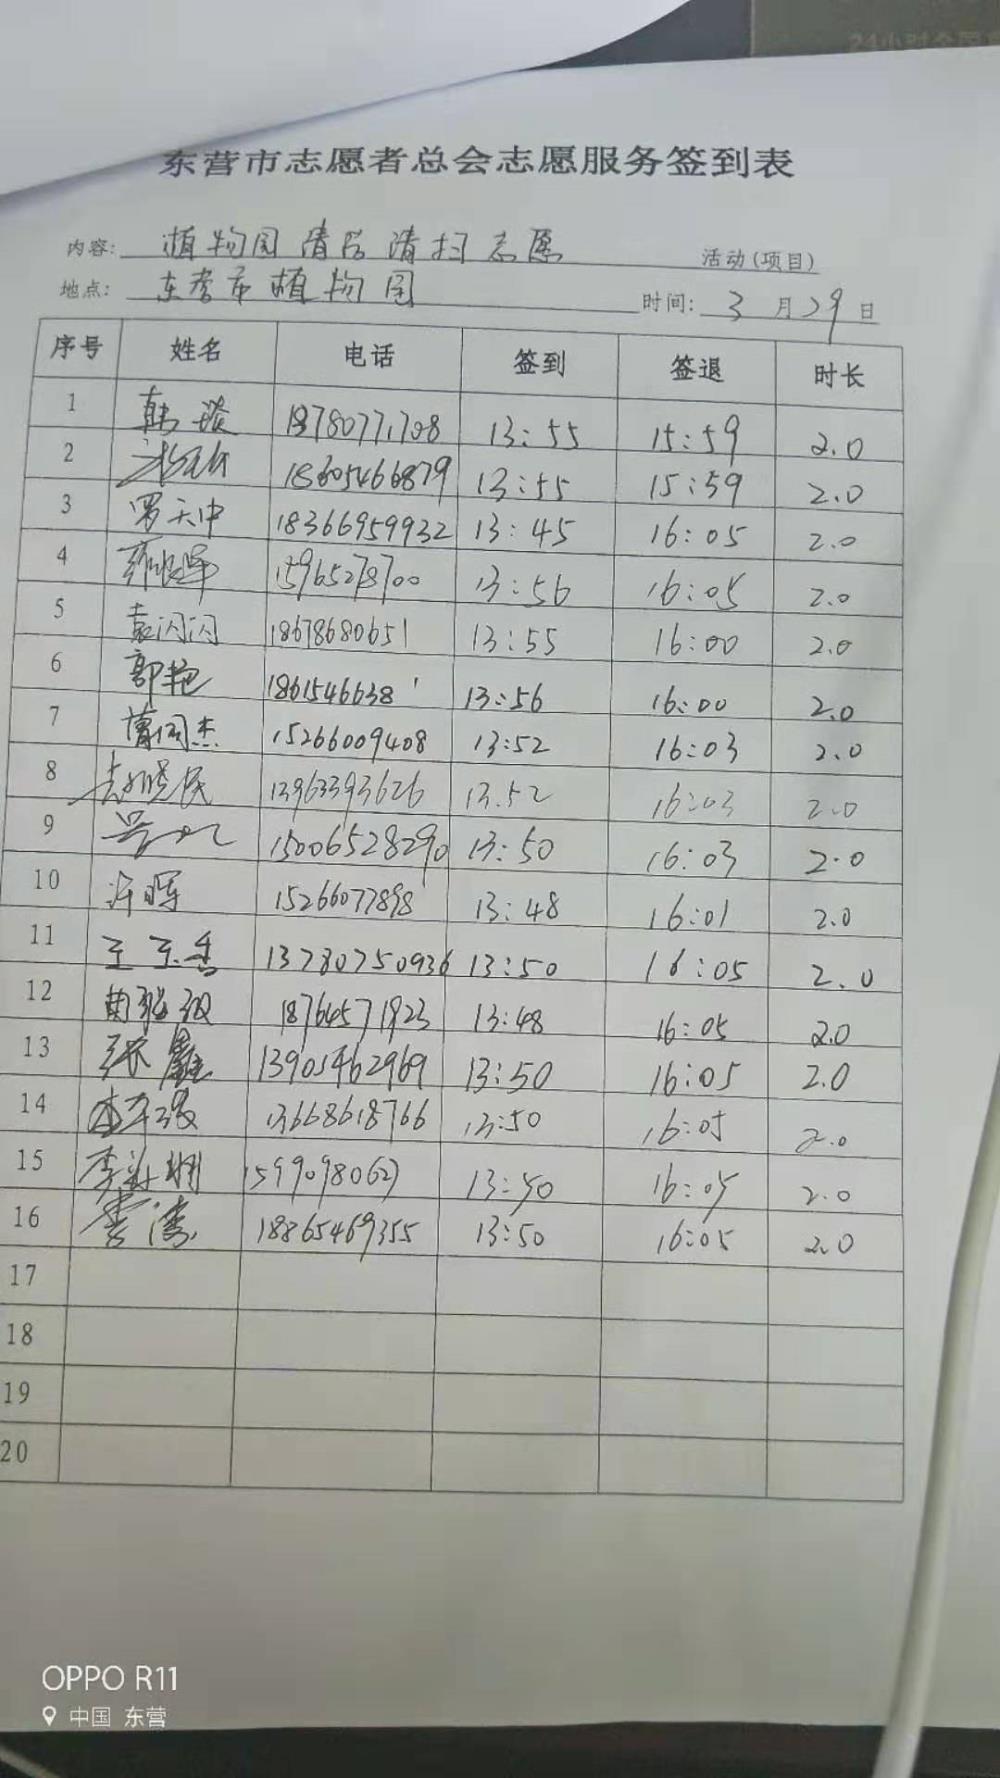 东营市志愿者总会志愿服务签到表
内容: 植物园清后清扫志愿 活动(项目)
地点: 东营市植物园 时间: 3月29日
序号 姓名 电话 签到 签退 时长
1 韩 13:55 15:59 2.0
2 18605466879 13:55 15:59 2.0
3 罗天中 18366959932 13:45 16:05 2.0
4 15965278700 13:56 16:05 2.0
5 袁闪闪 18678680651 13:55 16:00 2.0
6 郭艳 13:56 16:00 2.0
7 曹同杰 15266009408 13:52 16:03 2.0
8 13963393626 13.52 16:03 2.0
9 15006528290 13:50 16:03 2.0
10 许晖 15266077898 13:48 16:01 2.0
11 王玉香 13780750936 13:50 16:05 2.0
12 18764571923 13:48 16:05 2.0
13 张鑫 13905462969 13:50 16:05 2.0
14 13668618766 13:50 16:05 2.0
15 李 13:50 16:05 2.0
16 李涛 18865469355 13:50 16:05 2.0
17
18
19
20
OPPO R11
中国 东营